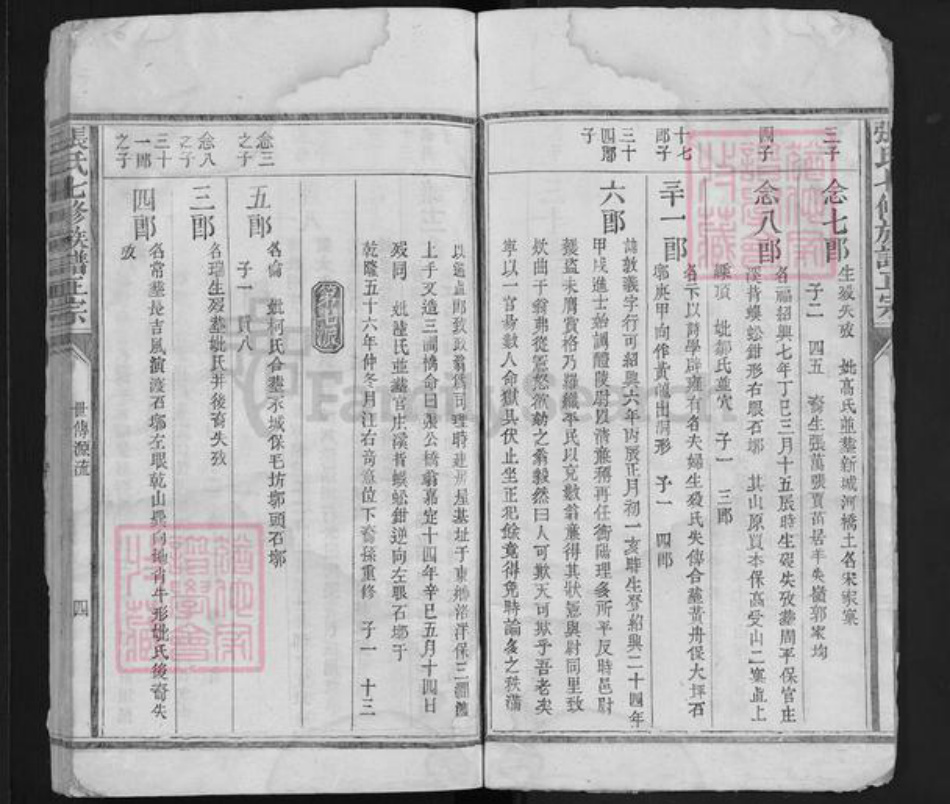 三子
念七郎
生歿失攷 妣高氏並塟新城河橋土名宋家窠
子二 四五 裔生張萬張賈苗居羊失嶺郭家均
四子
念八郎
名福紹興七年丁巳三月十五辰時生歿失攷塟周平保官庄
溪背蜈蚣鉗形右眼石墎 其山原買本保高受山二塞直上
嵊頂 妣鄒氏並穴 子一 三郎
十七郎子
卅一郎
名下以蔚學辟雍有名夫婦生歿氏失傳合塟黃舟保大坪石
墎庚甲向作黃龍出洞形 子一 四郎
三十四郎子
六郎
諱敦義字行可紹興六年丙辰正月初一亥時生登紹興二十四年
甲戌進士始調醴陵尉以清亷稱再任衡陽理多所平反時邑尉
獲盜未膺賞格乃羅織平民以充數翁亷得其狀憲與尉同里致
欵曲于翁弗從憲怒欲劾之翁毅然曰人可欺天可欺乎吾老矣
寧以一官易數人命獄具伏止坐正犯餘竟得免時論多之秩滿
以通直郎致政翁僞司理時建居屋基址于東鄉渚洋保三澗濟
上手又造三洞橋命曰張公橋翁嘉定十四年辛巳五月十四日
歿同 妣陸氏並塟官庄溪背蜈蚣鉗逆向左眼石墎于
乾隆五十六年仲冬月江右奇童位下裔孫重修 子一 十三
第四派
念三之子
五郎
名倫 妣柯氏合塟永城保毛坊墎頭石墎
子一 貢八
念八之子
三郎
名瑞生歿塟妣氏并後裔失攷
三十一郎之子
四郎
名常塟長吉風演渡石墎左眼乾山巽向地肖牛形妣氏後裔失
攷
張氏七修族譜正宗
世傳源流
四
張氏七修族譜正宗
FamilySearch